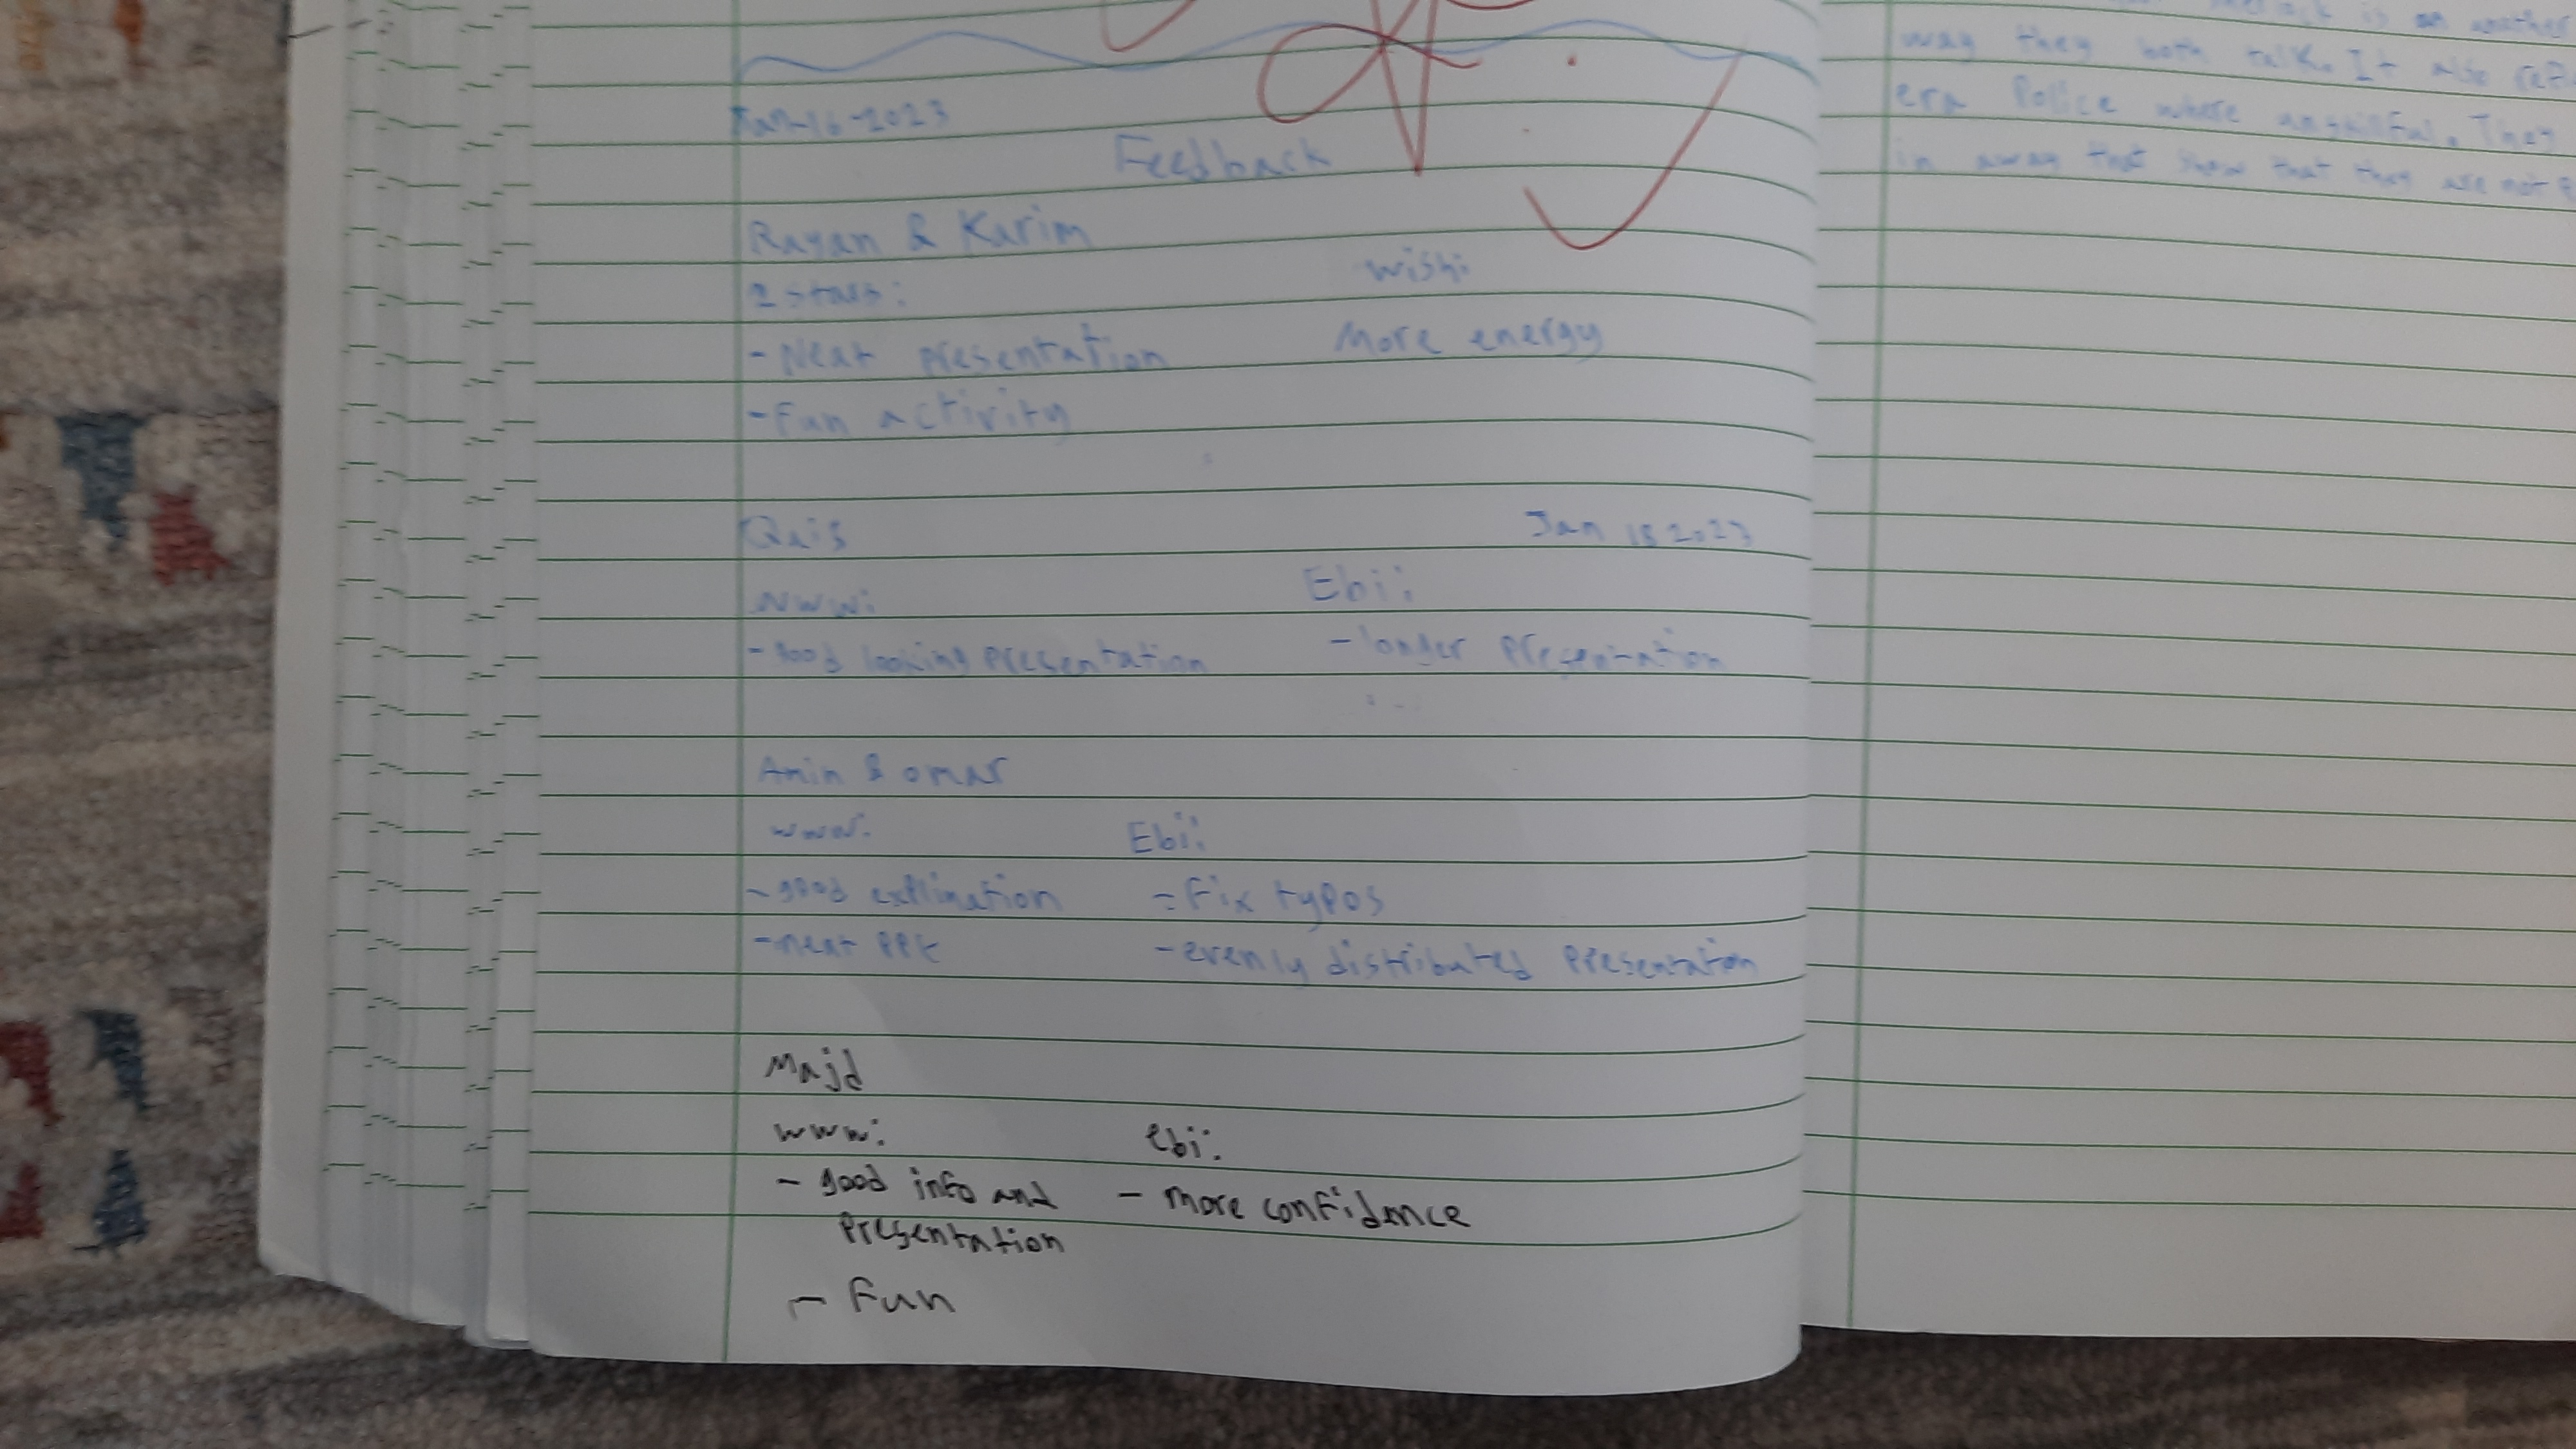 Jan-16-2023
Feedback
Rayan & Karim
2 stars:
wish:
- Neat presentation
More energy
- Fun activity
Qais
Jan 18 2023
www:
Ebi:
- good looking presentation
- longer presentation
Amin & omar
www:
Ebi:
- good explination
- Fix typos
- neat PPt
- evenly distributed presentation
Majd
www:
ebi:
- good info and
presentation
- more confidence
- Fun
is an another
way they both talk. It also
era Police where unskillful. They
in away that show that they are not